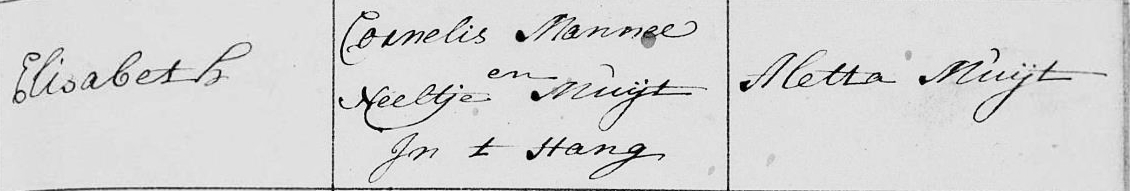 Elisabeth
Cornelis Mannee
en
Neeltje Muijt
In t Hang
Aletta Muijt